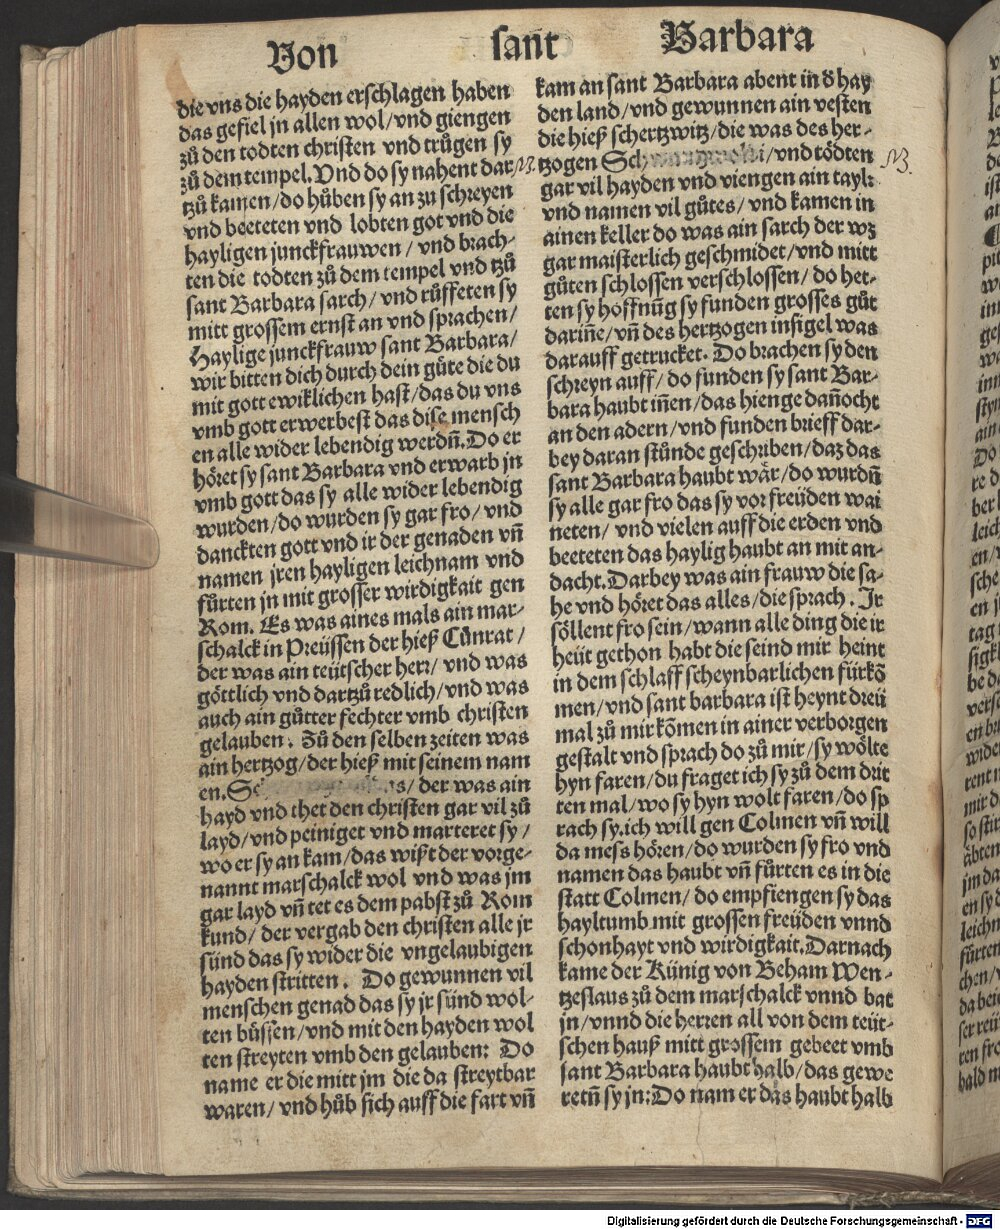 Von sant Barbara
die vns die hayden erschlagen haben
das gefiel jn allen wol/vnd giengen
zů den todten christen vnd trůgen sy
zů dem tempel. Vnd do sy nahent dar
tzů kamen/do hůben sy an zu schreyen
vnd beeteten vnd lobten got vnd die
hayligen junckfrauwen/ vnd brach-
ten die todten zů dem tempel vnd tzů
sant Barbara sarch/vnd růffeten sy
mitt grossem ernst an vnd sprachen/
Haylige junckfrauw sant Barbara/
wir bitten dich durch dein gůte die du
mit gott ewiklichen hast/das du vns
vmb gott erwerbest das dise mensch
en alle wider lebendig werdñ. Do er
höret sy sant Barbara vnd erwarb jn
vmb gott das sy alle wider lebendig
wurden/do wurden sy gar fro/vnd
danckten gott vnd ir der genaden vñ
namen jren hayligen leichnam vnd
fůrten jn mit grosser wirdigkait gen
Rom. Es was aines mals ain mar-
schalck in Preüssen der hieß Cůnrat/
der was ain teütscher herr/ vnd was
göttlich vnd dartzů redlich/vnd was
auch ain gůtter fechter vmb christen
gelauben. Zů den selben zeiten was
ain hertzog/der hieß mit seinem nam
en. s/ der was ain
hayd vnd thet den christen gar vil zů
layd/vnd peiniget vnd marteret sy/
wo er sy an kam/das wißt der vorge-
nannt marschalck wol vnd was jm
gar layd vñ tet es dem pabst zů Rom
kund/ der vergab den christen alle jr
sünd das sy wider die vngelaubigen
hayden stritten. Do gewunnen vil
menschen genad das sy jr sünd wol-
ten bůssen/vnd mit den hayden wol
ten streyten vmb den gelauben: Do
name er die mitt jm die da streytbar
waren/vnd hůb sich auff die fart vñ
kam an sant Barbara abent in d hay
den land/vnd gewunnen ain vesten
die hieß schertzwitz/die was des her-
tzogen /vnd tödten
gar vil hayden vnd viengen ain tayl:
vnd namen vil gůtes/vnd kamen in
ainen keller do was ain sarch der wz
gar maisterlich geschmidet/vnd mitt
gůten schlossen verschlossen/do het-
ten sy hoffnũg sy funden grosses gůt
dariñe/vñ des hertzogen insigel was
darauff getrucket. Do brachen sy den
schreyn auff/do funden sy sant Bar-
bara haubt iñen/das hienge dañocht
an den adern/vnd funden brieff dar-
bey daran stůnde geschriben/daz das
sant Barbara haubt wär/do wurdñ
sy alle gar fro das sy vor freüden wai
neten/ vnd vielen auff die erden vnd
beeteten das haylig haubt an mit an-
dacht. Darbey was ain frauw die sa-
he vnd höret das alles/die sprach. Jr
söllent fro sein/wann alle ding die ir
heüt gethon habt die seind mir heint
in dem schlaff scheynbarlichen fürkõ
men/vnd sant barbara ist heynt dreü
mal zů mir kõmen in ainer verborgen
gestalt vnd sprach do zů mir/sy wölte
hyn faren/du fraget ich sy zů dem drit
ten mal/wo sy hyn wolt faren/do sp
rach sy. ich will gen Colmen vñ will
da mess hören/do wurden sy fro vnd
namen das haubt vñ fürten es in die
statt Colmen/do empfiengen sy das
hayltumb mit grossen freüden vnnd
schonhayt vnd wirdigkait. Darnach
kame der Künig von Beham Wen-
tzeslaus zů dem marschalck vnnd bat
jn/vnnd die herren all von dem teüt-
schen hauß mitt grossem gebeet vmb
sant Barbara haubt halb/das gewe
retñ sy jn: Do nam er das haubt halb
Digitalisierung gefördert durch die Deutsche Forschungsgemeinschaft - DFG